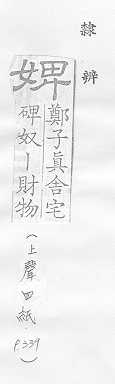 隸辨
婢
鄭子真舍宅
碑奴｜財物
(上聲四紙 P.339)